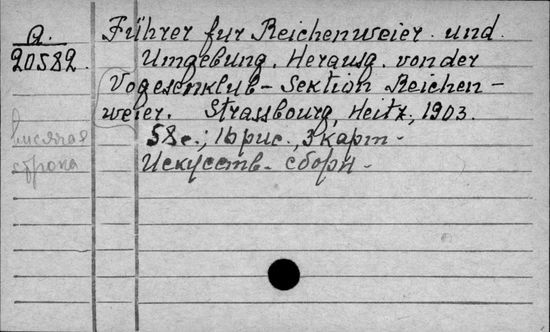 a.
20582.
Führer fur Reichenweier und
Umgebung. Herausg. von der
Vogesenklub - Sektion Reichen-
weier. Strassbourg, Heitz, 1903.
58 с.; 16 рис., 3 карт.
Искусств. сборн.
висячая
строка